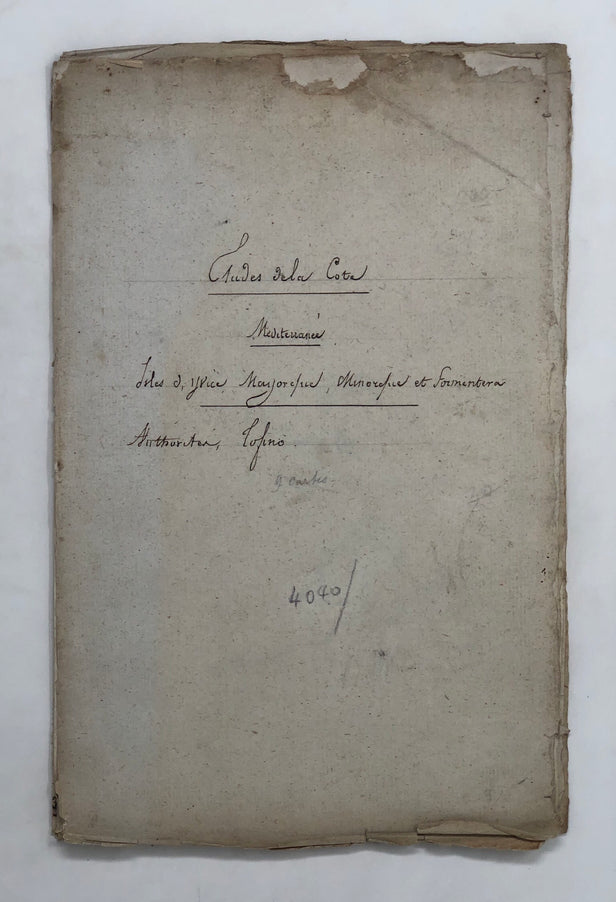 Etudes de la Cote
Mediterraneé
Isles d, Yvice, Mayorque, Minorque et Formentera
Authorités, Tofino.
9 cartes.
4040/